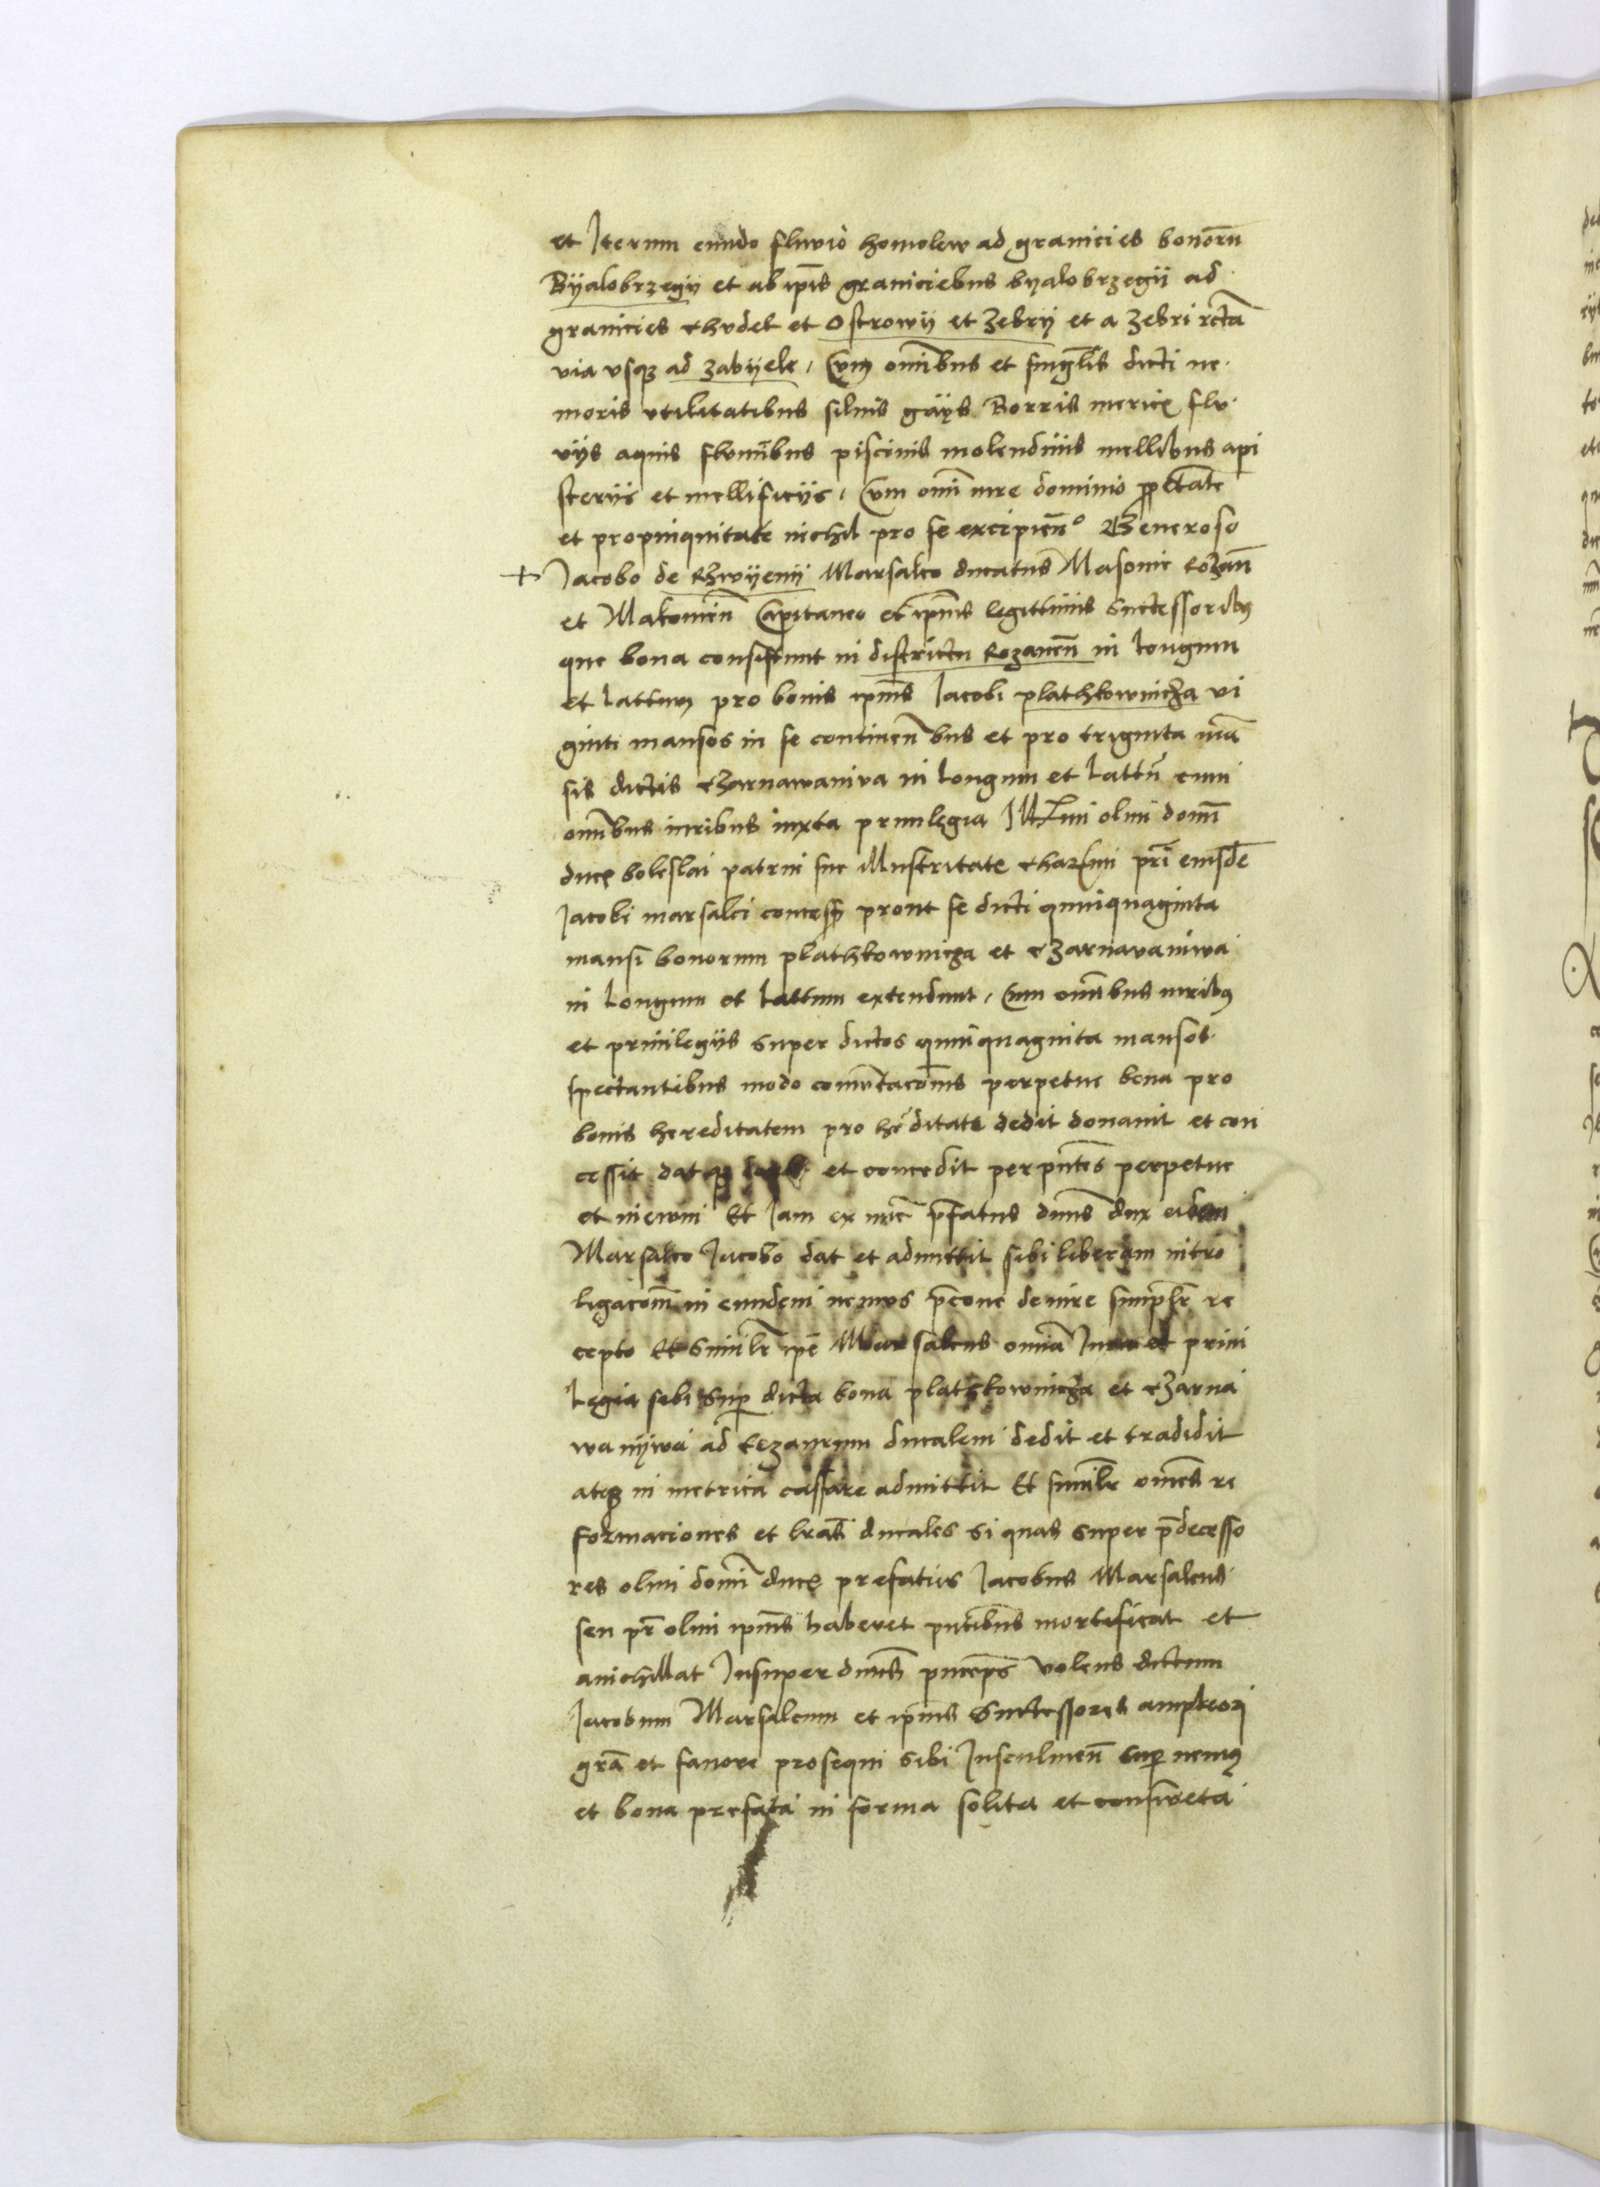 et Iterum eundo fluvio homolew ad granicies bonorū
Byalobrzegy et ab ip̄is graniciebus byalobrzegii ad
granicies chudek et Ostrowij et Zebrij et a Zebri rectā
via vsq3 ad zabyele, Cum om̄ibus et singl̄is dicti ne
moris vtilitatibus siluis gays Borris mericꝭ flu
vijs aquis flumībus piscinis molendinis mellibus api
sterijs et mellificijs, Cum om̄i iure dominio propēta̅te
et propinquitate nichil pro se excipien̄o Generoso
+ Jacobo de Rzwyenij Marsalco ducatus Masouie Rozan̄
et Makowien̄ Capitaneo et ip̄ius legittimis successoribꝫ
que bona consistunt in districtu Rozanen̄ in longum
et lattum pro bonis ip̄ius Jacobi plathkownicza vi
ginti mansos in se continen̄bus et pro triginta mā
sis dictis Czarnawaniva in longum et lattū cum
om̄ibus iuribus iuxta priuilegia Illr̄mi olim domī
ducꝭ boleslai patrui sue Illustritate charīmi pr̄i eiusdē
Jacobi marsalci concess̄ prout se dicti quinquaginta
mansi bonorum plathkownicza et Czarnavaniwa
in longum et lattum extendunt, Cum om̄ibus iuribꝫ
et priuilegijs super dictos quinquaginta mansos
spectantibus modo comutacōnis perpetue bona pro
bonis hereditatem pro hēditate dedit donauit et con
cessit datq3 et concedit per pn̄tes perpetue
et in ewm Et Jam ex nūc p̄fatus dn̄us dux eidem
Marsalco Jacobo dat et admittit sibi liberam intro
ligacōm in eundem nemus p̄cone de iure simpl̄r re
cepto Et similr̄ ip̄e Marsalcus omīa Iura et priui
legia sibi sup dicta bona plathkownicza et Czarna
wanywa ad tezaurum ducalem dedit et tradidit
atq3 in metrica cassare admittit Et similr̄ om̄es re
formaciones et lr̄as ducales si quas super p̄decesso
res olim domī ducꝭ prefatus Jacobus Marsalcus
seu pr̄ olim ip̄ius haberet pn̄tibus mortificat et
anichillat Insuper dn̄us pn̄ceps volens dictum
Jacobum Marsalcum et ip̄ius Successores ampliori
gr̄a et fauore prosequi sibi Insculmen̄ sup nemꝫ
et bona prefata in forma solita et consweta